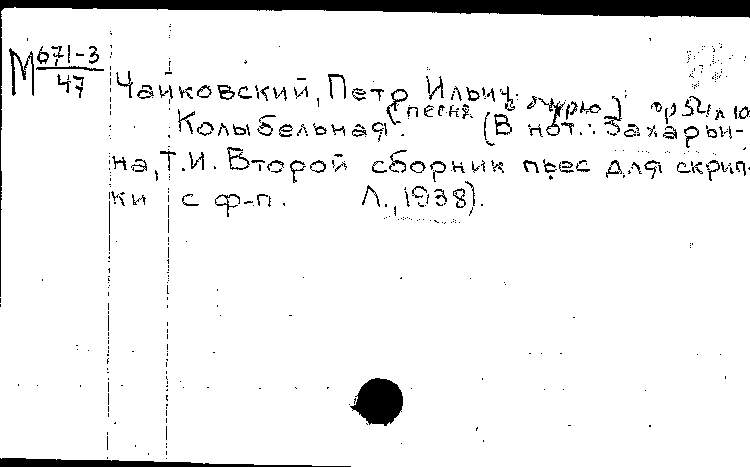 М 671-3
47
Чайковский, Петр Ильич.
[песня в бурю] ор 54 л 10
Колыбельная. (В нот.: Захарьи-
на, Т.И. Второй сборник пьес для скрип-
ки с ф-п. Л., 1938).